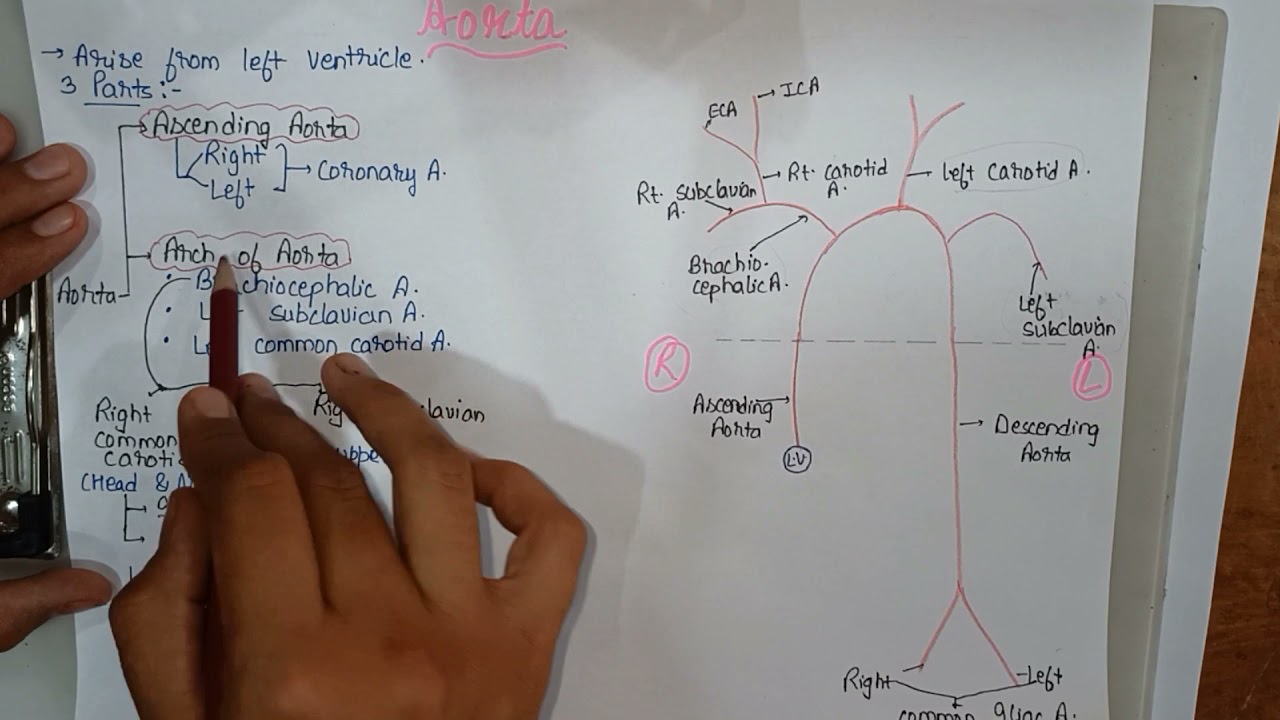 Aorta
→ Arise from left ventricle.
3 Parts :-
Ascending Aorta
Right
Left
→ Coronary A.
Arch of Aorta
Aorta
• Brachiocephalic A.
• subclavian A.
• common carotid A.
Right
common
(Head &
ECA
→ ICA
→ Rt. carotid
A.
Rt. subclavian
A.
→ left carotid A.
Brachio-
cephalic A.
Left
subclavian
A.
R
L
Ascending
Aorta
L.V
→ Descending
Aorta
Right
Left
common iliac A.